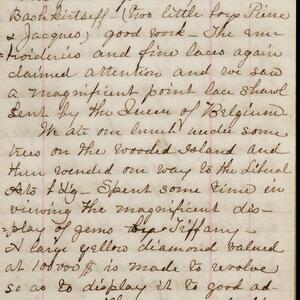 Bashkirtseff (two little boys Pierre
& Jacques) good work - The em
broideries and fine laces again
claimed attention and we saw
a magnificent point lace shawl
sent by the Queen of Belgium.
We ate our lunch under some
trees on the Wooded Island and
then wended our way to the Liberal
Arts bdg - Spent some time in
viewing the magnificent dis-
play of gems by Tiffany -
A large yellow diamond valued
at 100000$ is made to revolve
so as to display it to good ad-